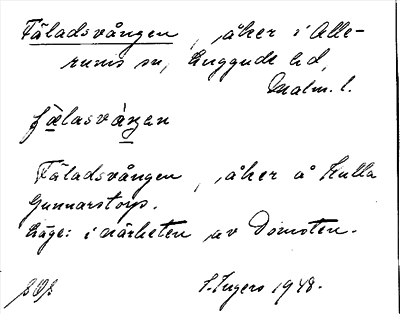 Fäladsvången, åker i Alle-
rums sn, Luggude hd,
Malm. l.
fälasvåŋen
Fäladsvången, åker å Kulla
Gunnarstorp.
Läge: i närheten av Domsten.
I. Ingers 1948.